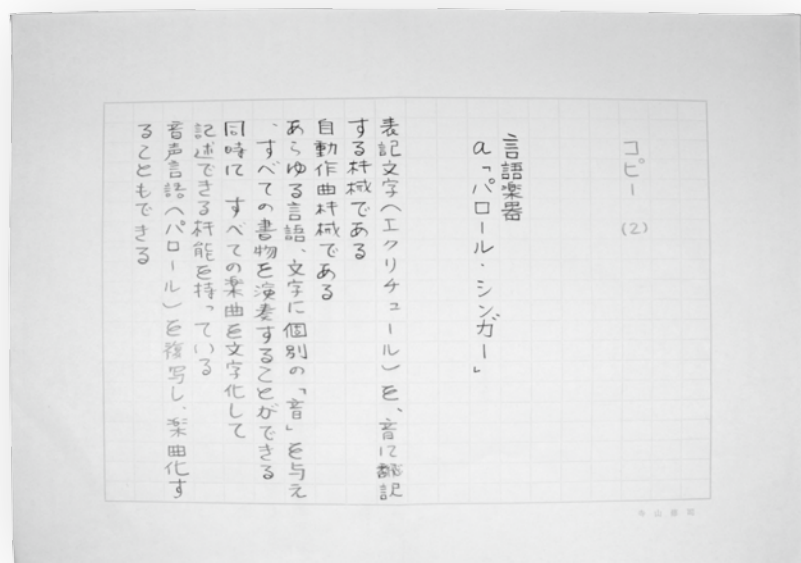 コピー (2)
言語楽器
a「パロール・シンガー」
表記文字(エクリチュール)を、音に翻記
する杆械である
自動作曲杆械である
あらゆる言語、文字に個別の「音」を与え
、すべての書物を演奏することができる
同時に、すべての楽曲を文字化して
記述できる杆能を持っている
音声言語(パロール)を複写し、楽曲化す
ることもできる
寺山修司